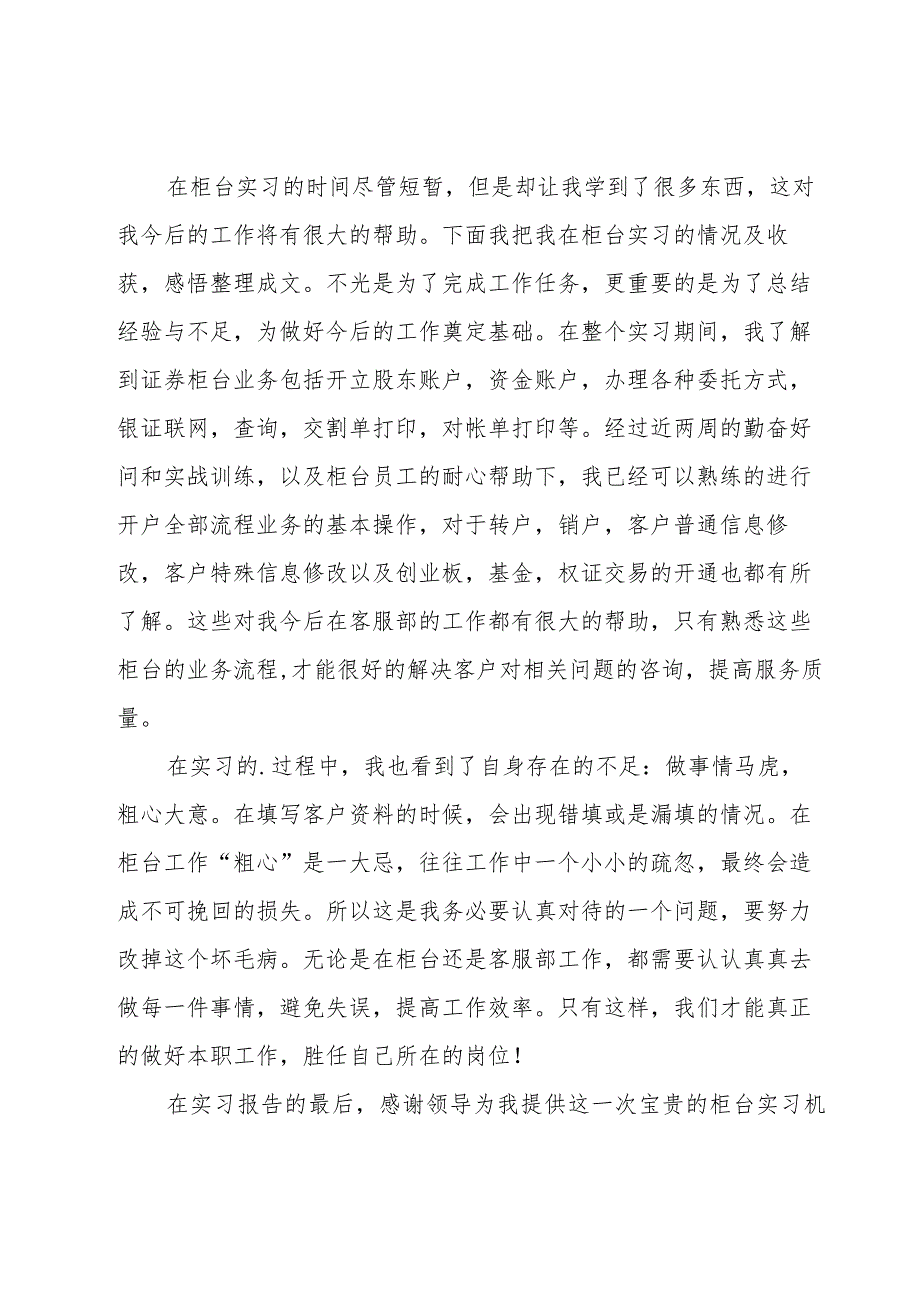 在柜台实习的时间尽管短暂，但是却让我学到了很多东西，这对
我今后的工作将有很大的帮助。下面我把我在柜台实习的情况及收
获，感悟整理成文。不光是为了完成工作任务，更重要的是为了总结
经验与不足，为做好今后的工作奠定基础。在整个实习期间，我了解
到证券柜台业务包括开立股东账户，资金账户，办理各种委托方式，
银证联网，查询，交割单打印，对帐单打印等。经过近两周的勤奋好
问和实战训练，以及柜台员工的耐心帮助下，我已经可以熟练的进行
开户全部流程业务的基本操作，对于转户，销户，客户普通信息修
改，客户特殊信息修改以及创业板，基金，权证交易的开通也都有所
了解。这些对我今后在客服部的工作都有很大的帮助，只有熟悉这些
柜台的业务流程,才能很好的解决客户对相关问题的咨询，提高服务质
量。
在实习的.过程中，我也看到了自身存在的不足：做事情马虎，
粗心大意。在填写客户资料的时候，会出现错填或是漏填的情况。在
柜台工作“粗心”是一大忌，往往工作中一个小小的疏忽，最终会造
成不可挽回的损失。所以这是我务必要认真对待的一个问题，要努力
改掉这个坏毛病。无论是在柜台还是客服部工作，都需要认认真真去
做每一件事情，避免失误，提高工作效率。只有这样，我们才能真正
的做好本职工作，胜任自己所在的岗位！
在实习报告的最后，感谢领导为我提供这一次宝贵的柜台实习机